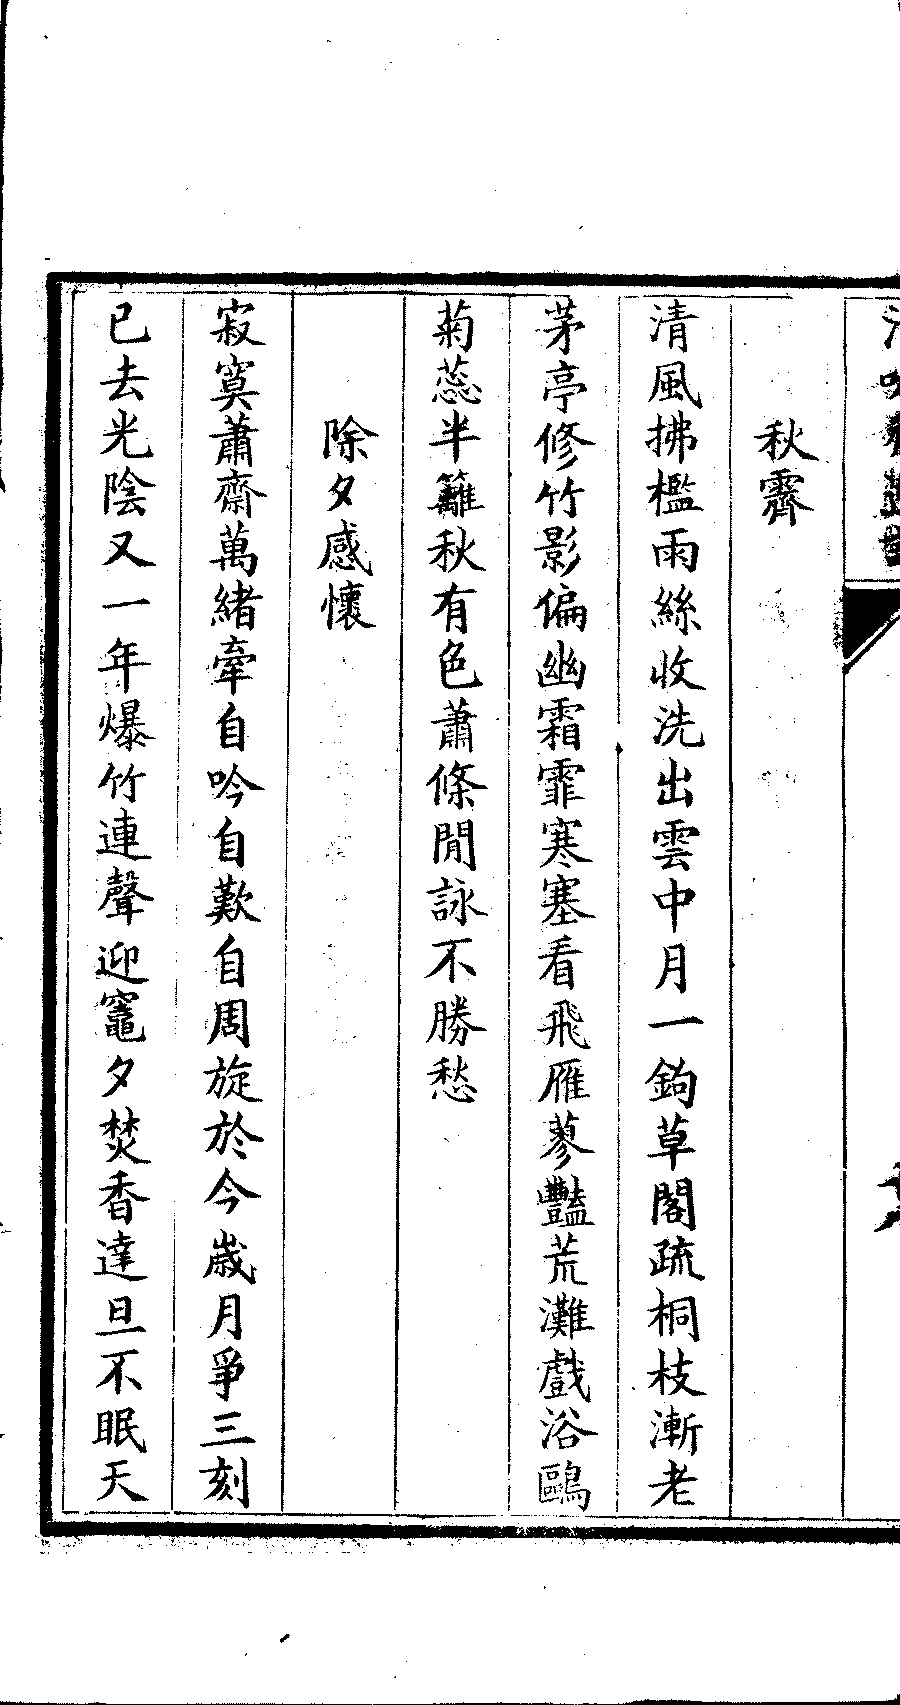 秋霽
清風拂檻雨絲收洗出雲中月一鉤草閣疏桐枝漸老
茅亭修竹影偏幽霜霏寒塞看飛雁蓼豔荒灘戲浴鷗
菊蕊半籬秋有色蕭條閒詠不勝愁
除夕感懷
寂寞蕭齋萬緒牽自吟自歎自周旋於今歲月爭三刻
已去光陰又一年爆竹連聲迎竈夕焚香達旦不眠天